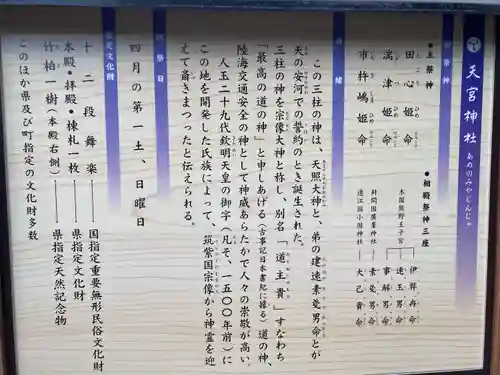 天宮神社 あめのみやじんじゃ
御祭神
●主祭神
田心姫命
湍津姫命
市杵嶋姫命
●相殿祭神三座
本国熊野王子宮
伊弉冉命
速玉男命
事解男命
封間国廣峯神社 素戔男命
遠江国小國神社 大己貴命
由緒
この三柱の神は、天照大神と、弟の建速素戔男命とが
天の安河での誓約のとき誕生された。
三柱の神を宗像大神と称し、別名「道主貴」すなわち
「最高の道の神」と申しあげる(古事記日本書紀に據る)道の神、
陸海交通安全の神として神威あらたかで人々の崇敬が高い。
人王二十九代欽明天皇の御字(凡そ、一五〇〇年前)に
この地を開発した氏族によって、筑紫国宗像から神霊を迎
えて斎きまつったと伝えられる。
例祭日
四月の第一土、日曜日
指定文化財
十二段舞楽――国指定重要無形民俗文化財
本殿・拝殿・棟札一枚――県指定文化財
竹柏一樹(本殿右側)――県指定天然記念物
このほか県及び町指定の文化財多数